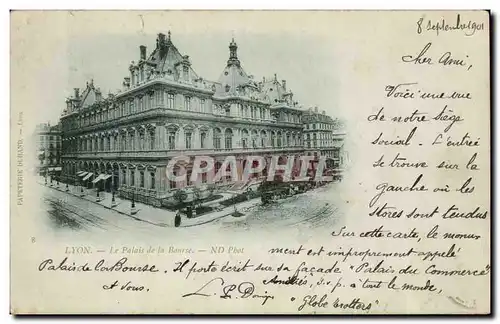 8 Septembre 1901
Cher Ami,
Voici une vue
de notre siège
social. L'entrée
se trouve sur la
gauche où les
stores sont tendus
Sur cette carte, le monu
ment est improprement appelé
Palais de la Bourse. Il porte écrit sur sa façade "Palais du Commerce"
Amitiés, S.v.p. à tout le monde,
et vous.
"Globe trotters"
LYON. — Le Palais de la Bourse. — ND Phot
PAPETERIE DURAND. - Lyon
CPARAMA